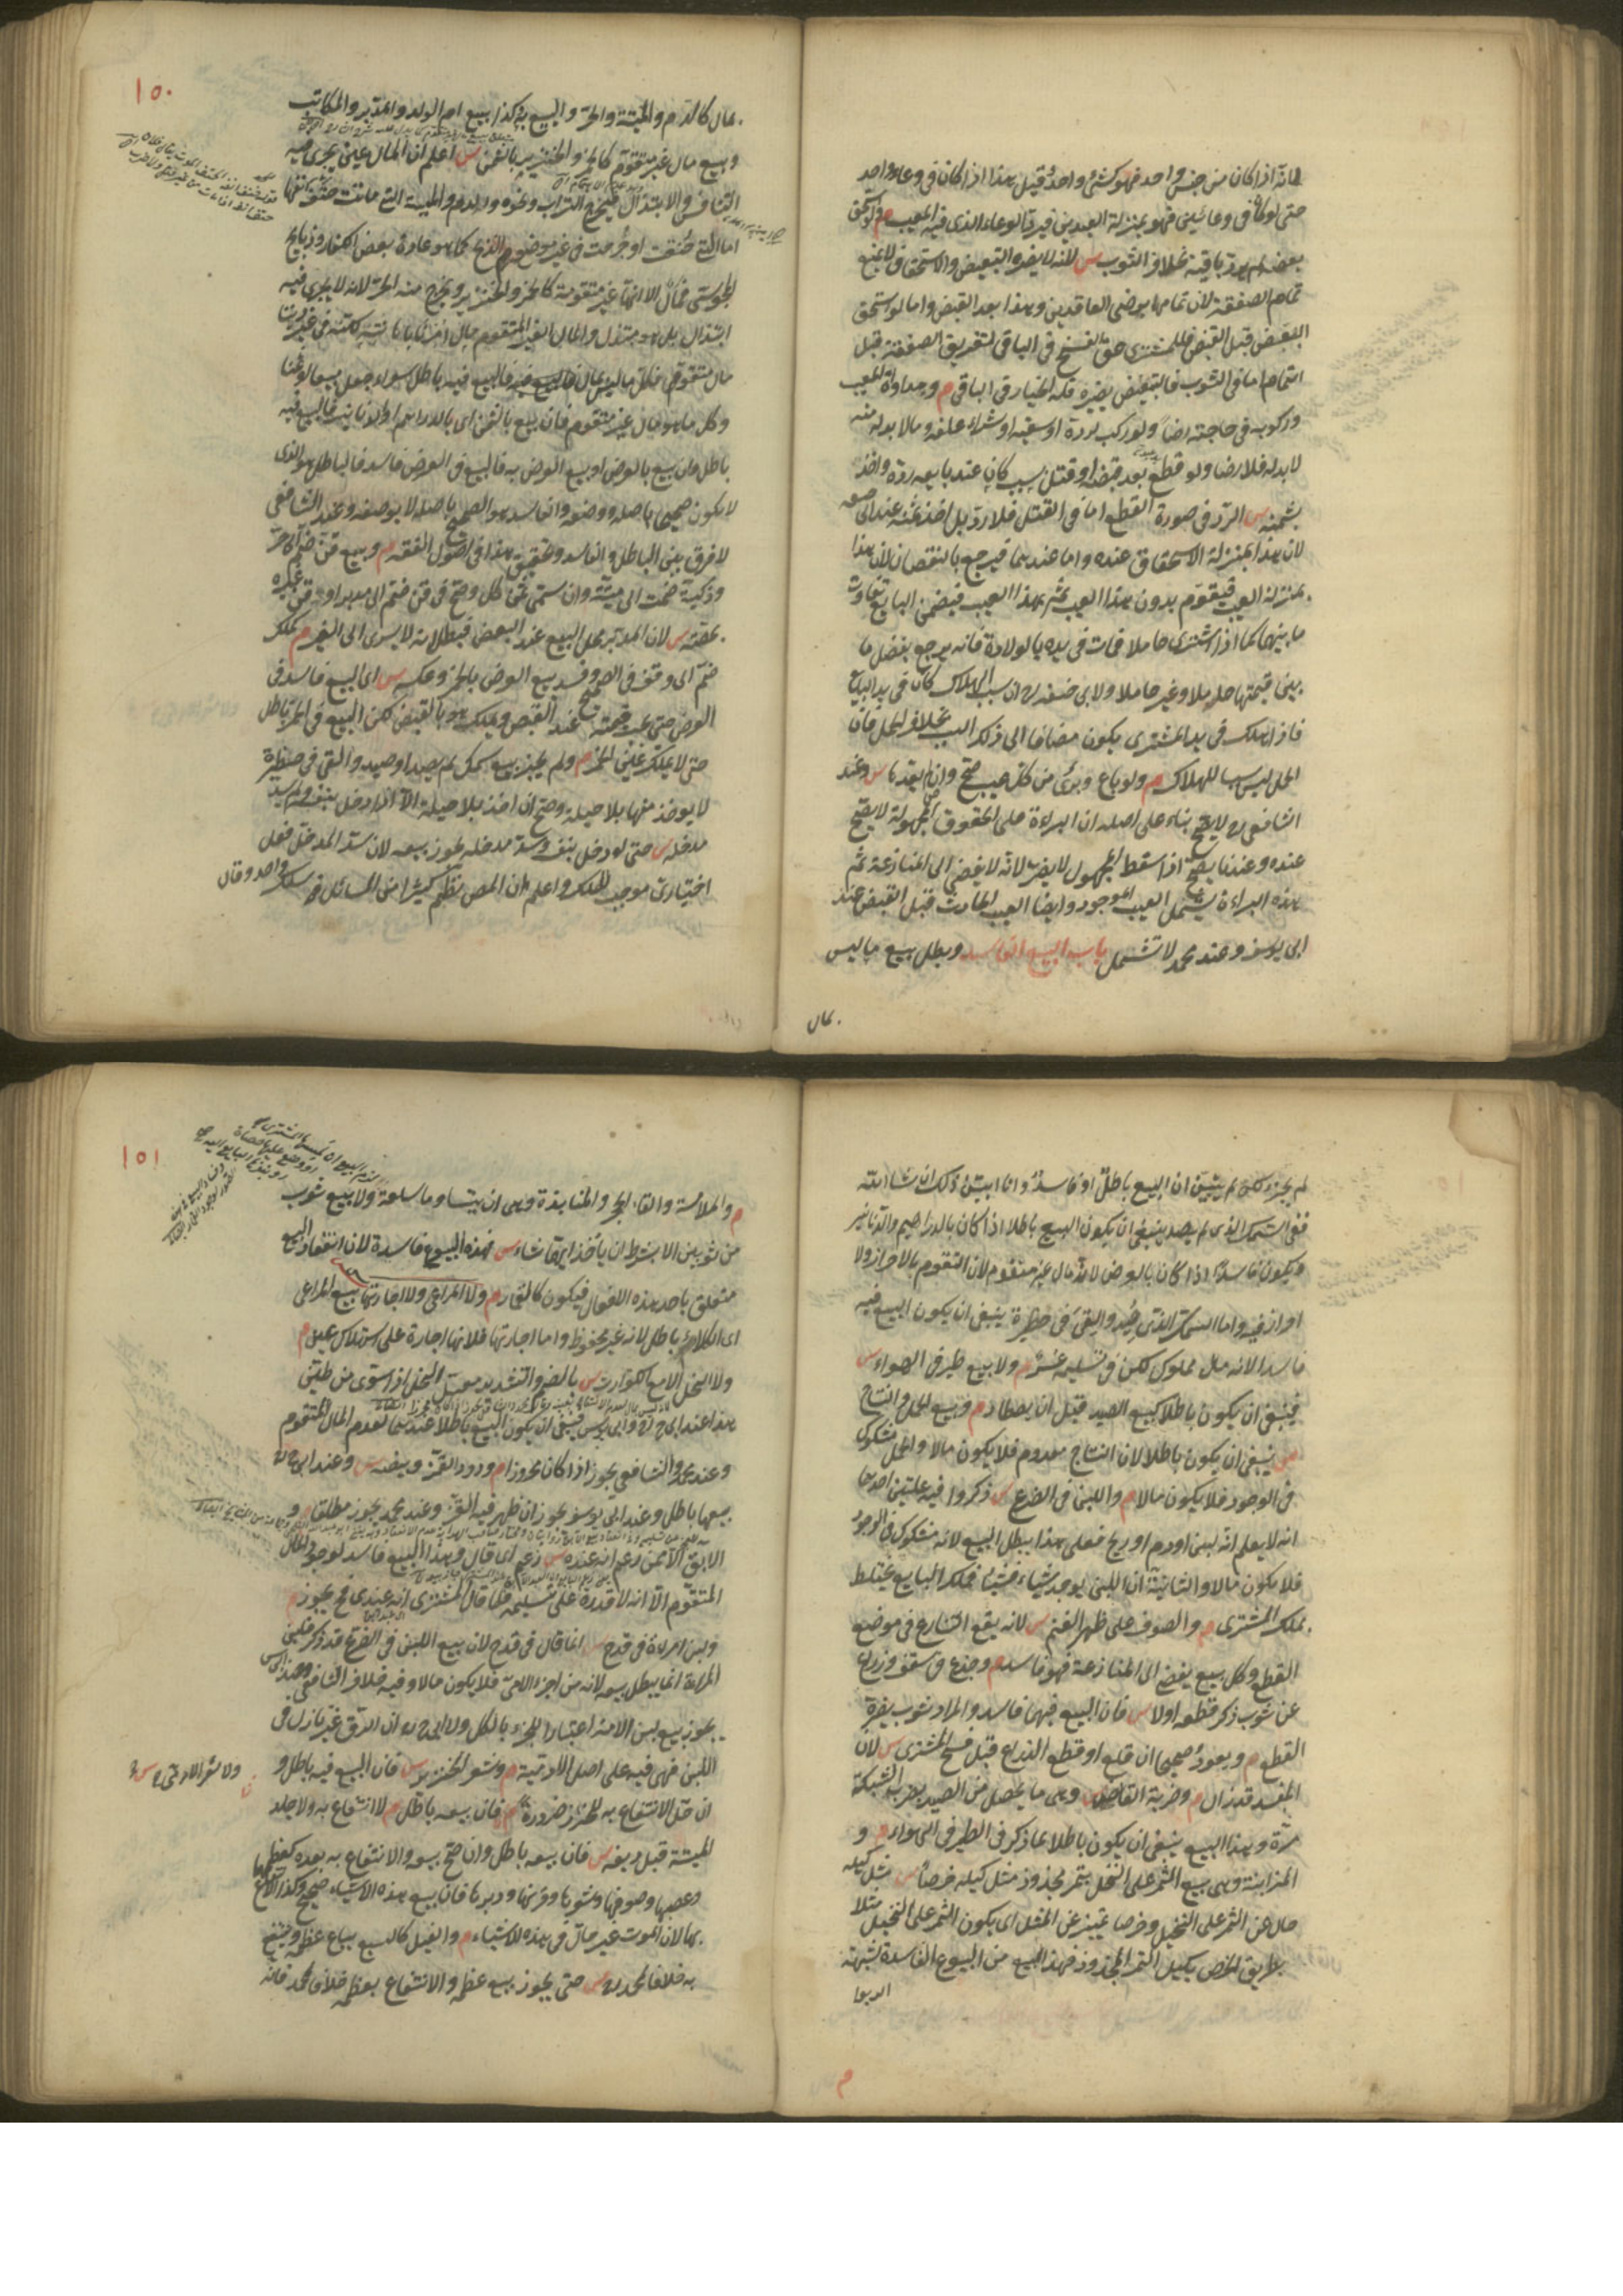 لانه اذا كان من جنس واحد فهو كشئ واحد قيل هذا اذا كان فى وعاء واحد
حتى لو كانا فى وعائين فهو بمنزلة العبدين فيرد الوعاء الذى فيه المعيب م ولو استحق
بعضه لم يرد باقيه بخلاف الثوب س لانه لا يضره التبعيض والاستحقاق لا يمنع
تمام الصفقة لان تمامها برضى العاقدين وهذا بعد القبض واما لو استحق
البعض قبل القبض فللمشترى حق الفسخ فى الباقى لتفريق الصفقة قبل
التمام اما فى الثوب فالتبعيض يضره فله الخيار فى الباقى م ومداواة المعيب
وركوبه فى حاجته رضا ولو ركب لرده او سقيه او شراء علفه ومالا بد له منه
لا بد له فلا رضا ولو قطع بعد قبضه او قتل بسبب كان عند بايعه رده واخذ
بثمنه س الرد فى صورة القطع اما فى القتل فلا رد بل اخذ ثمنه عند ابى حنيفة
لان هذا بمنزلة الاستحقاق عنده واما عندهما فيرجع بالنقصان لان هذا
بمنزلة العيب فيقوم بدون هذا العيب ثم بهذا العيب فيضمن البايع تفاوت
ما بينهما كما اذا اشترى حاملا فماتت فى يده بالولادة فانه يرجع بفضل ما
بين قيمتها حاملا وغير حاملا ولابى حنيفة رح ان سبب الهلاك كان فى يد البايع
فاذا هلك فى يد المشترى يكون مضافا الى ذلك السبب بخلاف الحمل فان
الحمل ليس سببا للهلاك م ولو باع وبرئ من كل عيب صح وان لم يعدها س وعند
الشافعى رح لا يصح بناء على اصله ان البراءة على الحقوق المجهولة لا يصح
عنده وعندنا يصح اذا سقط المجهول لا يضر لانه لا يفضى الى المنازعة ثم
هذه البراءة يشمل العيب الموجود وايضا العيب الحادث قبل القبض عند
ابى يوسف وعند محمد لا تشمل باب البيع الفاسد وبطل بيع ما ليس
بمال
١٥٠
بمال كالدم والميتة والحر والبيع به وكذا بيع ام الولد والمدبر والمكاتب
وبيع مال غير متقوم كالخمر والخنزير بالثمن س اعلم ان المال عين يجرى فيه
التنافس والابتذال فيخرج التراب ونحوه والدم والميتة التى ماتت حتف انفها
اما التى خنقت او جرحت فى غير موضع الذبح كما هو عادة بعض الكفار وذبايح
المجوسى فمال الا انها غير متقومة كالخمر والخنزير ويخرج منه الحر لانه لا يجرى فيه
ابتذال بل هو مبتذل والمال الغير المتقوم مال امرنا باهانته لكنه فى غير ديننا
مال متقوم فكل ما ليس بمال فالبيع فيه باطل سواء جعل مبيعا او ثمنا
وكل ما هو مال غير متقوم فان بيع بالثمن اى بالدراهم او الدنانير فالبيع فيه
باطل وان بيع بالعرض او بيع العرض به فالبيع فى العرض فاسد فالباطل هو الذى
لا يكون صحيحا باصله ووصفه والفاسد هو الصحيح باصله لا بوصفه وعند الشافعى
لا فرق بين الباطل والفاسد وتحقيق هذا فى اصول الفقه م وبيع قن ضم الى حر
وذكية ضمت الى ميتة وان سمى ثمن كل وصح فى قن ضم الى مدبر او قن غيره
بحصته س لان المدبر محل البيع عند البعض فبطلانه لا يسرى الى الغير م كملك
ضم الى وقف فى الصحيح وفسد بيع العرض بالخمر وعكسه س اى البيع فاسد فى
العرض حتى يجب قيمته عند القبض ويملك هو بالقبض لكن البيع فى الخمر باطل
حتى لا يملك عين الخمر م ولم يجز بيع سمك لم يصد او صيد والقى فى حظيرة
لا يوخذ منها بلا حيلة وصح ان اخذ بلا حيلة الا اذا دخل بنفسه ولم يسد
مدخله س حتى لو دخل بنفسه وسد مدخله يجوز بيعه لان سد المدخل فعل
اختيارى موجب للملك واعلم ان المص نظم كثيرا من المسائل فى سلك واحد وقال
لم يجز لكن لم يتبين ان البيع باطل او فاسد وانا ابين ذلك ان شاء الله
ففى السمك الذى لم يصد ينبغى ان يكون البيع باطلا اذا كان بالدراهيم والدنانير
ويكون فاسدا اذا كان بالعرض لانه مال غير متقوم لان التقوم بالاحراز ولا
احراز فيه واما السمك الذى صيد والقى فى حظيرة ينبغى ان يكون البيع فيه
فاسدا لانه مال مملوك لكن فى تسليمه عسر م ولا بيع طير فى الهواء س
فينبغى ان يكون باطلا كبيع الصيد قبل ان يصطاد م وبيع الحمل والنتاج
س ينبغى ان يكون باطلا لان النتاج معدوم فلا يكون مالا والحمل مشكوك
فى الوجود فلا يكون مالا م واللبن فى الضرع س ذكروا فيه علتين احدهما
انه لا يعلم انه لبن او دم او ريح فعلى هذا يبطل البيع لانه مشكوك فى الوجود
فلا يكون مالا والثانية ان اللبن يوجد شيئا فشيئا فملك البايع يختلط
بملك المشترى م والصوف على ظهر الغنم س لانه يقع التنازع فى موضع
القطع وكل بيع يفضى الى المنازعة فهو فاسد م وجذع فى سقف وذراع
من ثوب ذكر قطعه اولا س فان البيع فيهما فاسد والمراد ثوب يضره
القطع م ويعود صحيحا ان قلع او قطع الذراع قبل فسخ المشترى س لان
المفسد قد زال م وضربة القانص س وهى ما يحصل من الصيد بضرب الشبكة
مرة وهذا البيع ينبغى ان يكون باطلا لما ذكر فى الطير فى الهواء م و
المزابنة وهى بيع الثمر على النخل بتمر مجذوذ مثل كيله خرصا س مثل كيله
حال عن الثمر على النخيل وخرصا تمييز عن المثل اى يكون الثمر على النخيل مثلا
بطريق الخرص بكيل التمر المجذوذ فهذا البيع من البيوع الفاسدة لشبهة
الربوا
م
١٥١
م والملامسة والقاء الحجر والمنابذة وهى ان يتساوما سلعة ولا بيع ثوب
من ثوبين الا بشرط ان ياخذ ايهما شاء س فهذه البيوع فاسدة لان انعقاد البيع
متعلق باحد هذه الافعال فيكون كالقمار م ولا المراعى ولا اجارتها بيع المراعى
اى الكلاء باطل لانه غير محفوظ واما اجارتها فلانها اجارة على استهلاك عين م
ولا النحل الا مع الكوارت س بالضم والتشديد معسل النحل اذا سوى من طين
هذا عند ابى ح رح وابى يوسف فينبغى ان يكون البيع باطلا عندهما لعدم المال المتقوم
وعند محمد والشافعى يجوز اذا كان محروزا م ودود القز وبيضه س وعند ابى ح رح
بيعهما باطل وعند ابى يوسف يجوز ان ظهر فيه القز وعند محمد يجوز مطلقا م و
الابق الا ممن زعم انه عنده س زعم اى قال وهذا البيع فاسد لوجود المال
المتقوم الا انه لا قدرة على تسليمه فلما قال المشترى انه عندى فح يجوز م
ولبن امراة فى قدح س انما قال فى قدح لان بيع اللبن فى الضرع قد ذكر فلبن
المراة انما يبطل بيعه لانه من اجزاء الادمى فلا يكون مالا وفيه خلاف الشافعى وعند ابى يوسف
يجوز بيع لبن الامة اعتبارا للجزء بالكل ولابى ح رح ان الرق غير نازل فى
اللبن فهى فيه على اصل الادمية م وشعر الخنزير س فان البيع فيه باطل و
ان حل الانتفاع به للخرز ضرورة م فان بيعه باطل م لا انتفاع به ولا جلد
الميتة قبل دبغه س فان بيعه باطل وان صح بيعه والانتفاع به بعده كعظمها
وعصبها وصوفها وشعرها وقرنها ووبرها فان بيع هذه الاشياء صحيح وكذا الانتفاع
بها لان الموت غير حال فى هذه الاشياء م والفيل كالسبع يباع عظمه وينتفع
به خلافا لمحمد رح س حتى يجوز بيع عظمه والانتفاع بعظمه خلافا لمحمد فانه
ولا شعر الادمى